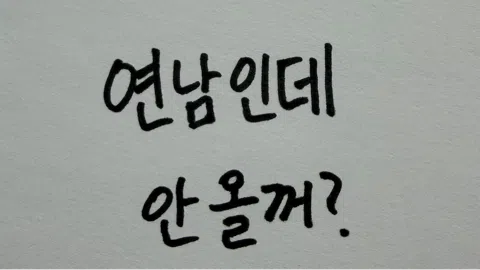 연남인데
안 올꺼?